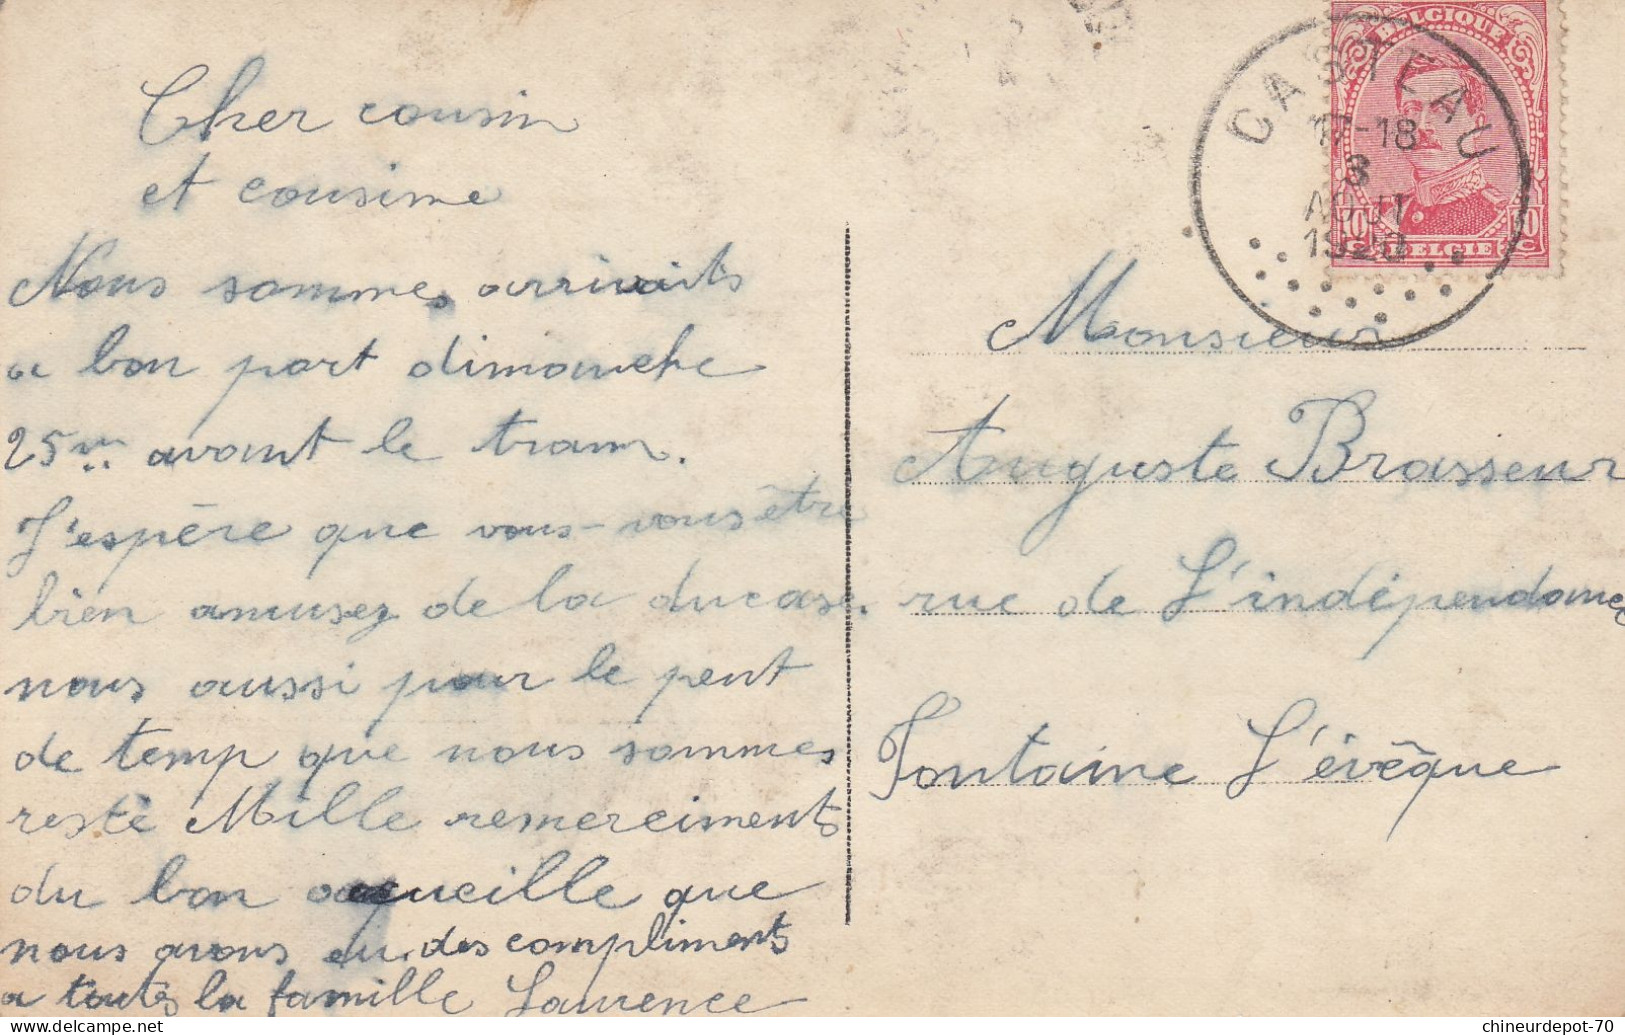 Cher cousin
et cousine
Nous sommes arrivaits
a bon port dimanche
25 m avant le tram.
J'espère que vous-vous être
bien amusez de la ducase.
nous aussi pour le peut
de temp que nous sommes
resté Mille remerciments
du bon acqueille que
nous avons eu. des compliments
a toutes la famille Laurence
BELGIQUE
CASTEAU
17-18
3
AOUT
1920
10 C 10 C
BELGIE
Monsieur
Auguste Brasseur
rue de L'indépendance
Fontaine L'évêque
chineurdepot-70